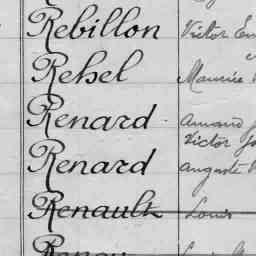 Rebillon Victor
Rehel Maurice
Renard Armand
Victor
Renard Auguste
Renault Louis